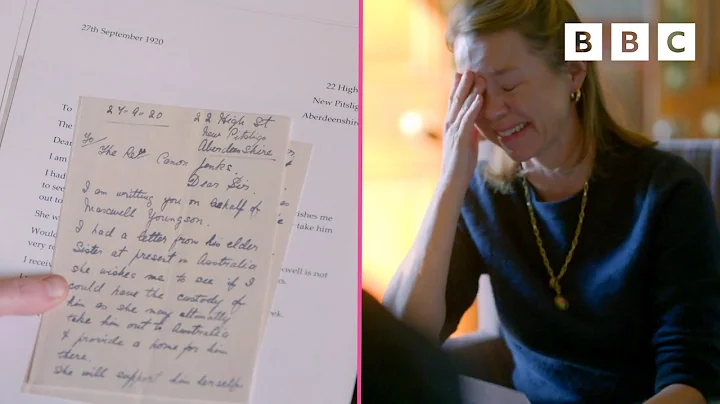 27th September 1920
22 High
New Pitslig
Aberdeenshire
To
The
Dear
I am
I had
to see
out to
She w
Would
very re
I receiv
ishes me
take him
xwell is not
rs.
k.
27-9-20
22 High St
New Pitsligo
Aberdeenshire
To
The Revd Canon Jenks.
Dear Sir.
I am writting you on behalf of
Maxwell Youngson.
I had a letter from his elder
Sister at present in Australia
she wishes me to see if I
could have the custody of
him as she may ultimatly
take him out to Australia
& provide a home for him
there.
She will support him herself
BBC